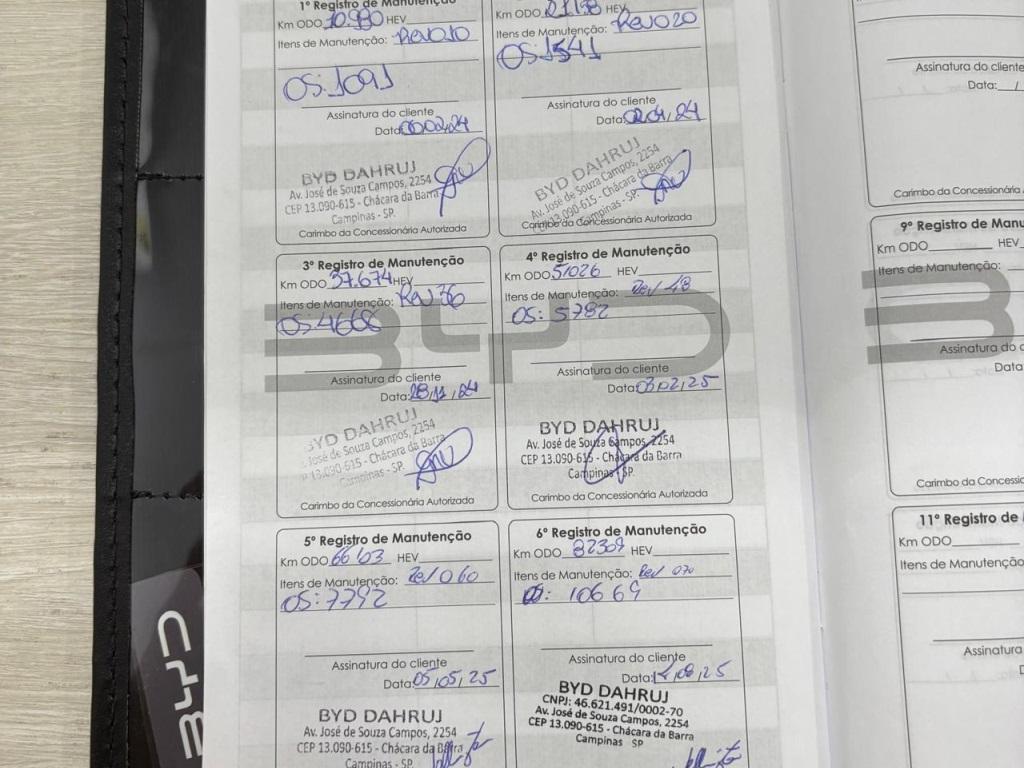 1º Registro de Manutenção
Km ODO 10.980 HEV
Itens de Manutenção: Rev010
OS:1091
Assinatura do cliente
Data: 02,24
BYD DAHRUJ
Av. José de Souza Campos, 2254
CEP 13.090-615 - Chácara da Barra
Campinas - SP.
Carimbo da Concessionária Autorizada
Km ODO HEV
Itens de Manutenção: Rev020
OS:1541
Assinatura do cliente
Data: 02,04,24
BYD DAHRUJ
Av. José de Souza Campos, 2254
13.090-615 - Chácara da Barra
Campinas - SP.
Carimbo da Concessionária Autorizada
3º Registro de Manutenção
Km ODO 37.674 HEV
Itens de Manutenção: Rev 36
OS:4668
Assinatura do cliente
Data: 28,11,24
BYD DAHRUJ
José de Souza Campos, 2254
13.090-615 - Chácara da Barra
Campinas - SP.
Carimbo da Concessionária Autorizada
4º Registro de Manutenção
Km ODO 51026 HEV
Itens de Manutenção: Rev 48
OS: 5782
Assinatura do cliente
Data: 03,02,25
BYD DAHRUJ
Av. José de Souza Campos, 2254
CEP 13.090-615 - Chácara da Barra
Campinas - SP.
Carimbo da Concessionária Autorizada
BYD
5º Registro de Manutenção
Km ODO 66103 HEV
Itens de Manutenção: Rev 060
OS:7792
Assinatura do cliente
Data: 05,05,25
BYD DAHRUJ
Av. José de Souza Campos, 2254
CEP 13.090-615 - Chácara da Barra
Campinas - SP.
6º Registro de Manutenção
Km ODO 82309 HEV
Itens de Manutenção: Rev 070
OS: 10669
Assinatura do cliente
Data: ,08,25
BYD DAHRUJ
CNPJ: 46.621.491/0002-70
Av. José de Souza Campos, 2254
CEP 13.090-615 - Chácara da Barra
Campinas SP
Assinatura do cli
Data: /
Carimbo da Concessionária
9º Registro de Manu
Km ODO HEV
Itens de Manutenção:
Assinatura do c
Data
Carimbo da Concessi
11º Registro de
Km ODO
Itens de Manutenção
Assinatura
D
BYD